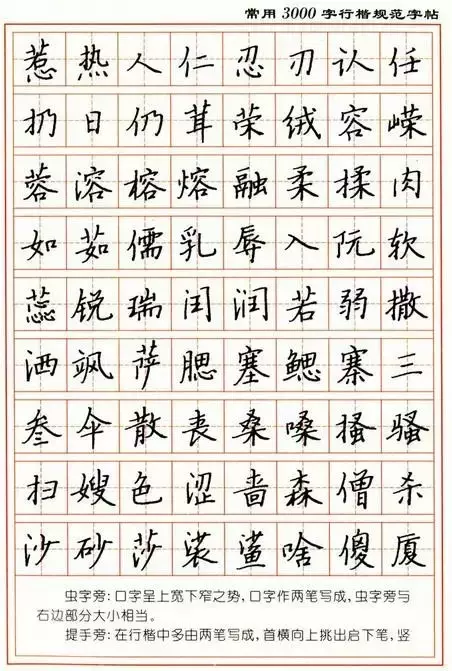 常用3000字行楷规范字帖
惹热人仁忍刃认任
扔日仍茸荣绒容嵘
蓉溶榕熔融柔揉肉
如茹儒乳辱入阮软
蕊锐瑞闰润若弱撒
洒飒萨腮塞鳃寨三
叁伞散丧桑嗓搔骚
扫嫂色涩啬森僧杀
沙砂莎裟鲨啥傻厦
虫字旁：口字呈上宽下窄之势，口字作两笔写成，虫字旁与
右边部分大小相当。
提手旁：在行楷中多由两笔写成，首横向上挑出启下笔，竖